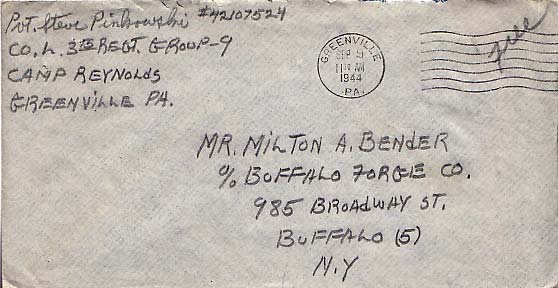 Pvt. Steve Pinkowski #42107524
CO. L. 3RD REGT. GROUP-9
CAMP REYNOLDS
GREENVILLE PA.
GREENVILLE
SEP
11 AM
1944
PA.
Free
MR. MILTON A. BENDER
% BUFFALO FORGE CO.
985 BROADWAY ST.
BUFFALO (5)
N.Y